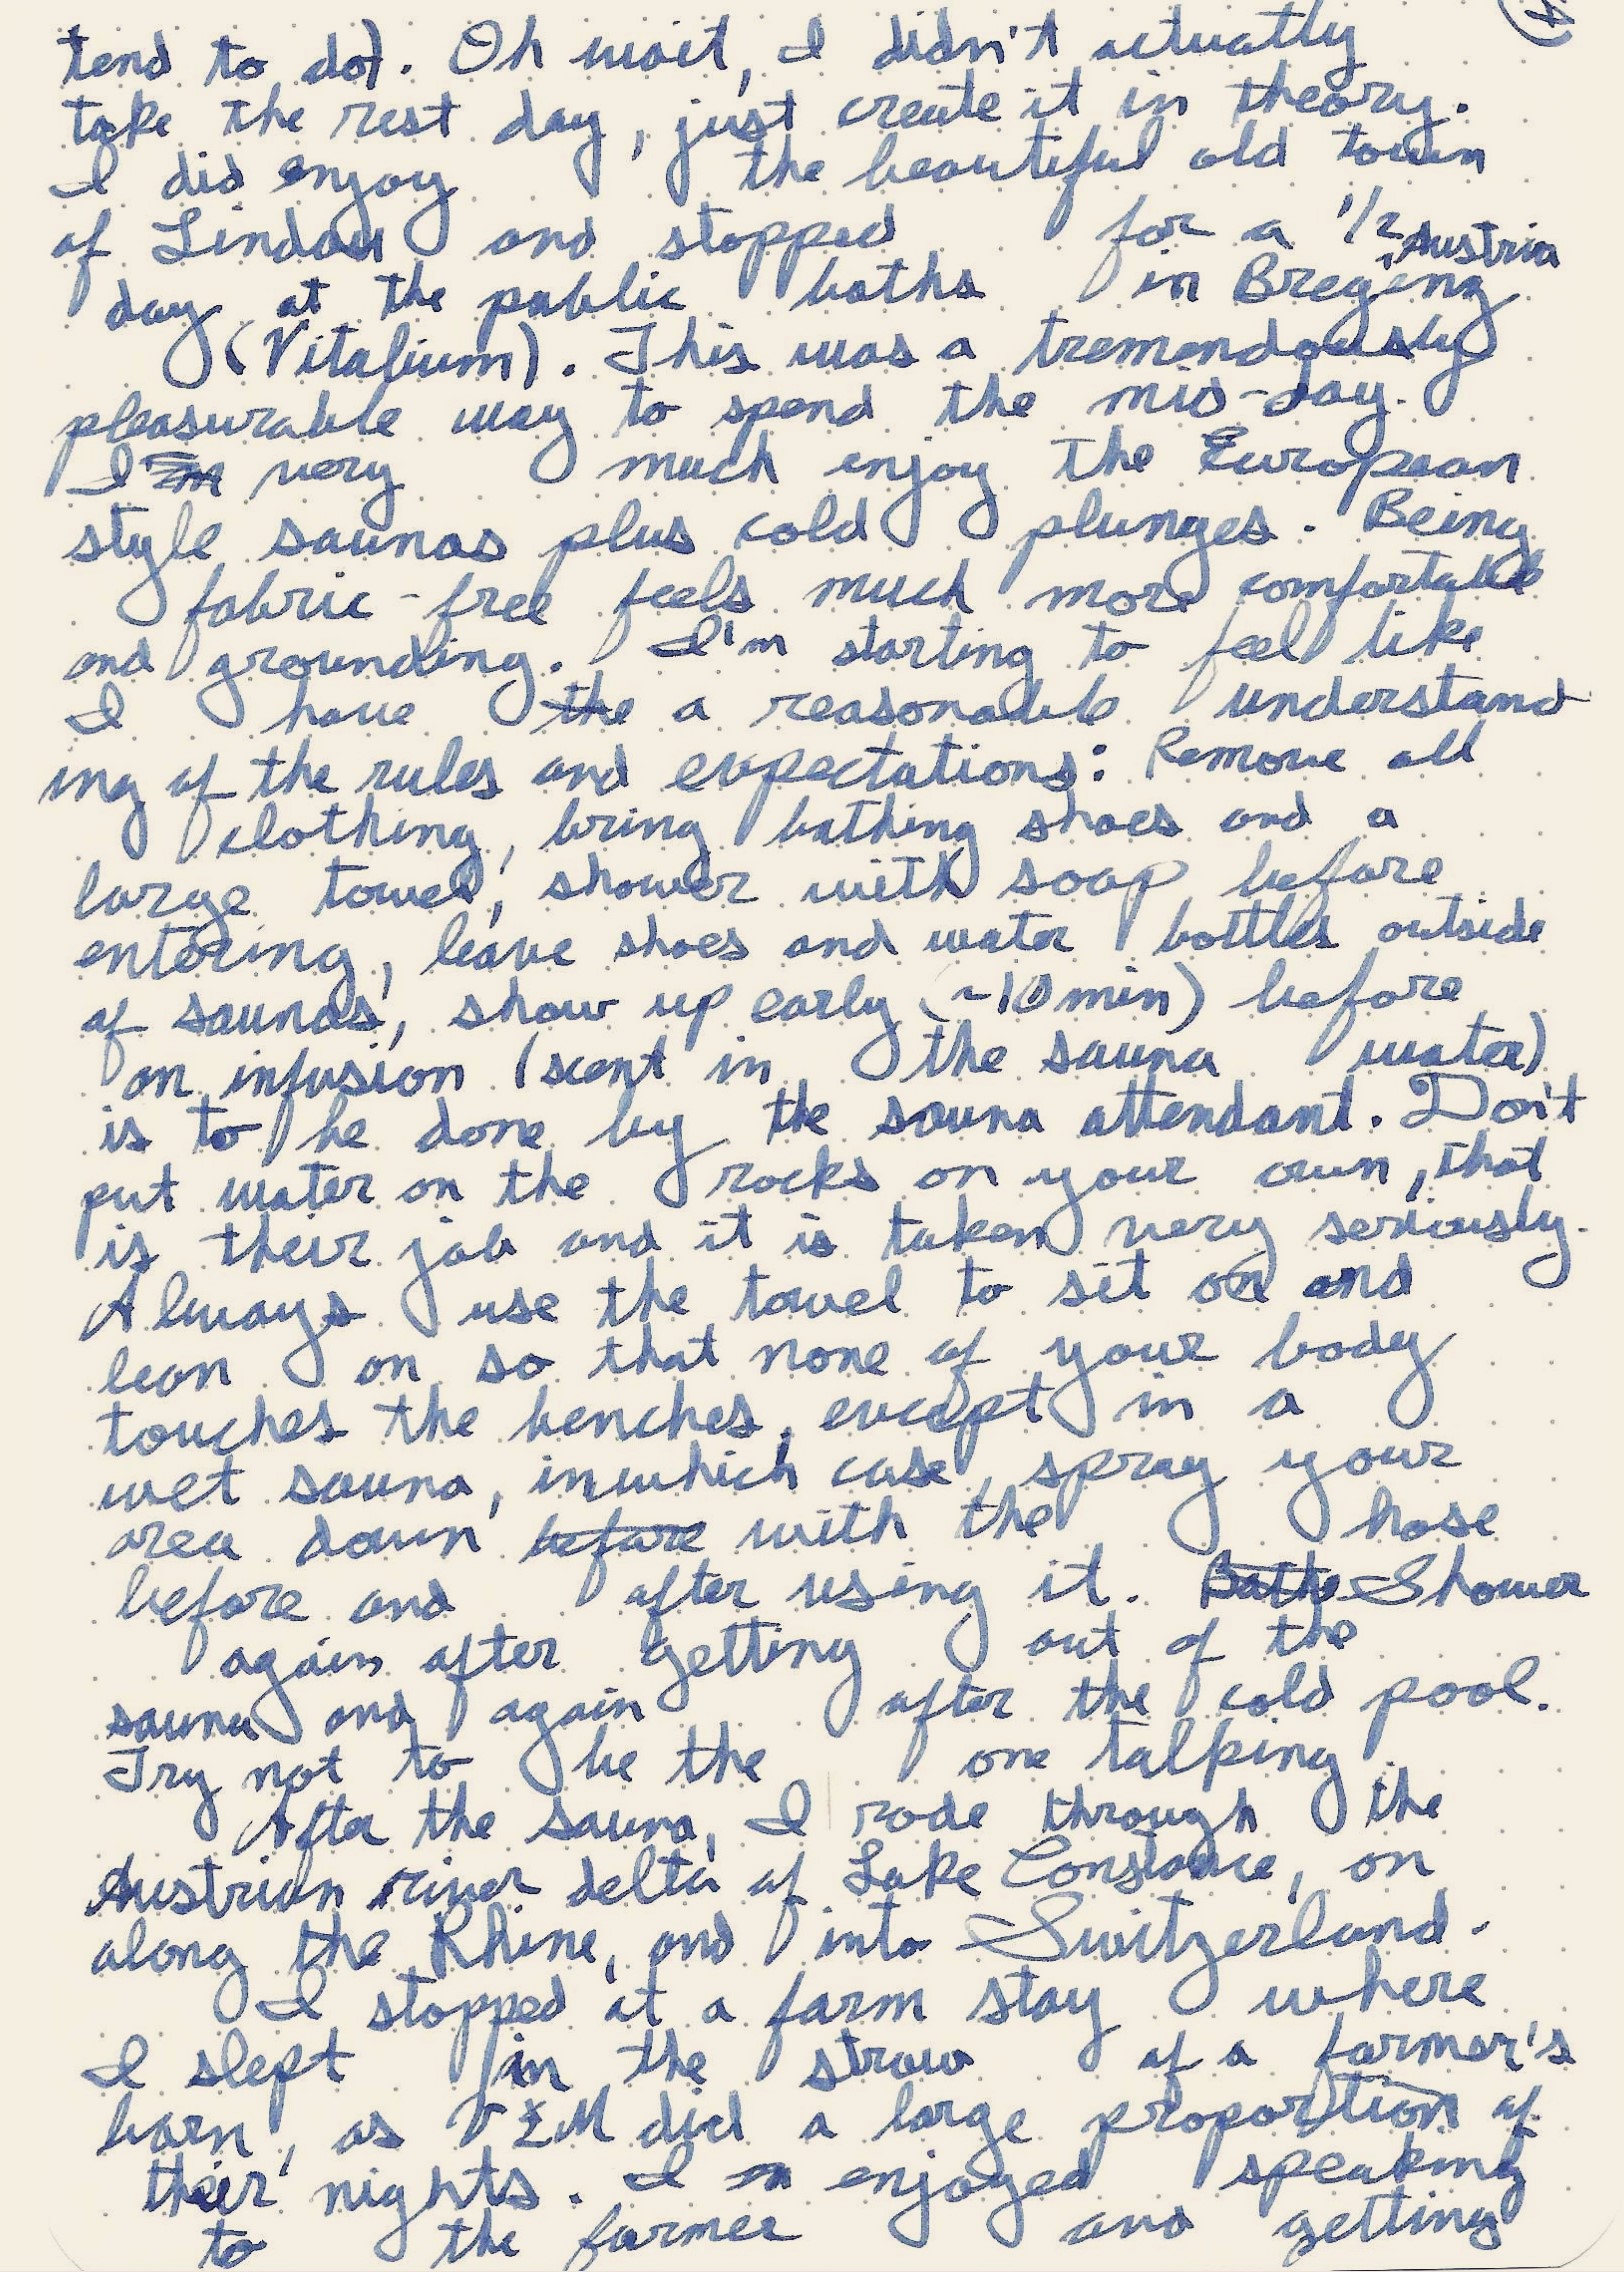 tend to do). Oh wait, I didn't actually
take the rest day, just create it in theory.
I did enjoy the beautiful old town
of Lindau and stopped for a 1/2
Austria
day at the public baths in Bregenz
(Vitalium). This was a tremendously
pleasurable way to spend the mid-day.
I very much enjoy the European
style saunas plus cold plunges. Being
fabric-free feels much more comfortable
and grounding. I'm starting to feel like
I have the a reasonable understand
ing of the rules and expectations: Remove all
clothing, bring bathing shoes and a
large towel, shower with soap before
entering, leave shoes and water bottles outside
of saunas, show up early (~10 min) before
an infusion (scent in the sauna water)
is to be done by the sauna attendant. Don't
put water on the rocks on your own, that
is their job and it is taken very seriously.
Always use the towel to sit on and
lean on so that none of your body
touches the benches, except in a
wet sauna, in which case, spray your
area down before with the hose
before and after using it. Bathe Shower
again after getting out of the
sauna and again after the cold pool.
Try not to be the one talking.
After the sauna, I rode through the
Austrian river delta of Lake Constance, on
along the Rhine, and into Switzerland.
I stopped at a farm stay where
I slept in the straw of a farmer's
barn, as V&M did a large proportion of
their nights. I enjoyed speaking
to the farmer and getting